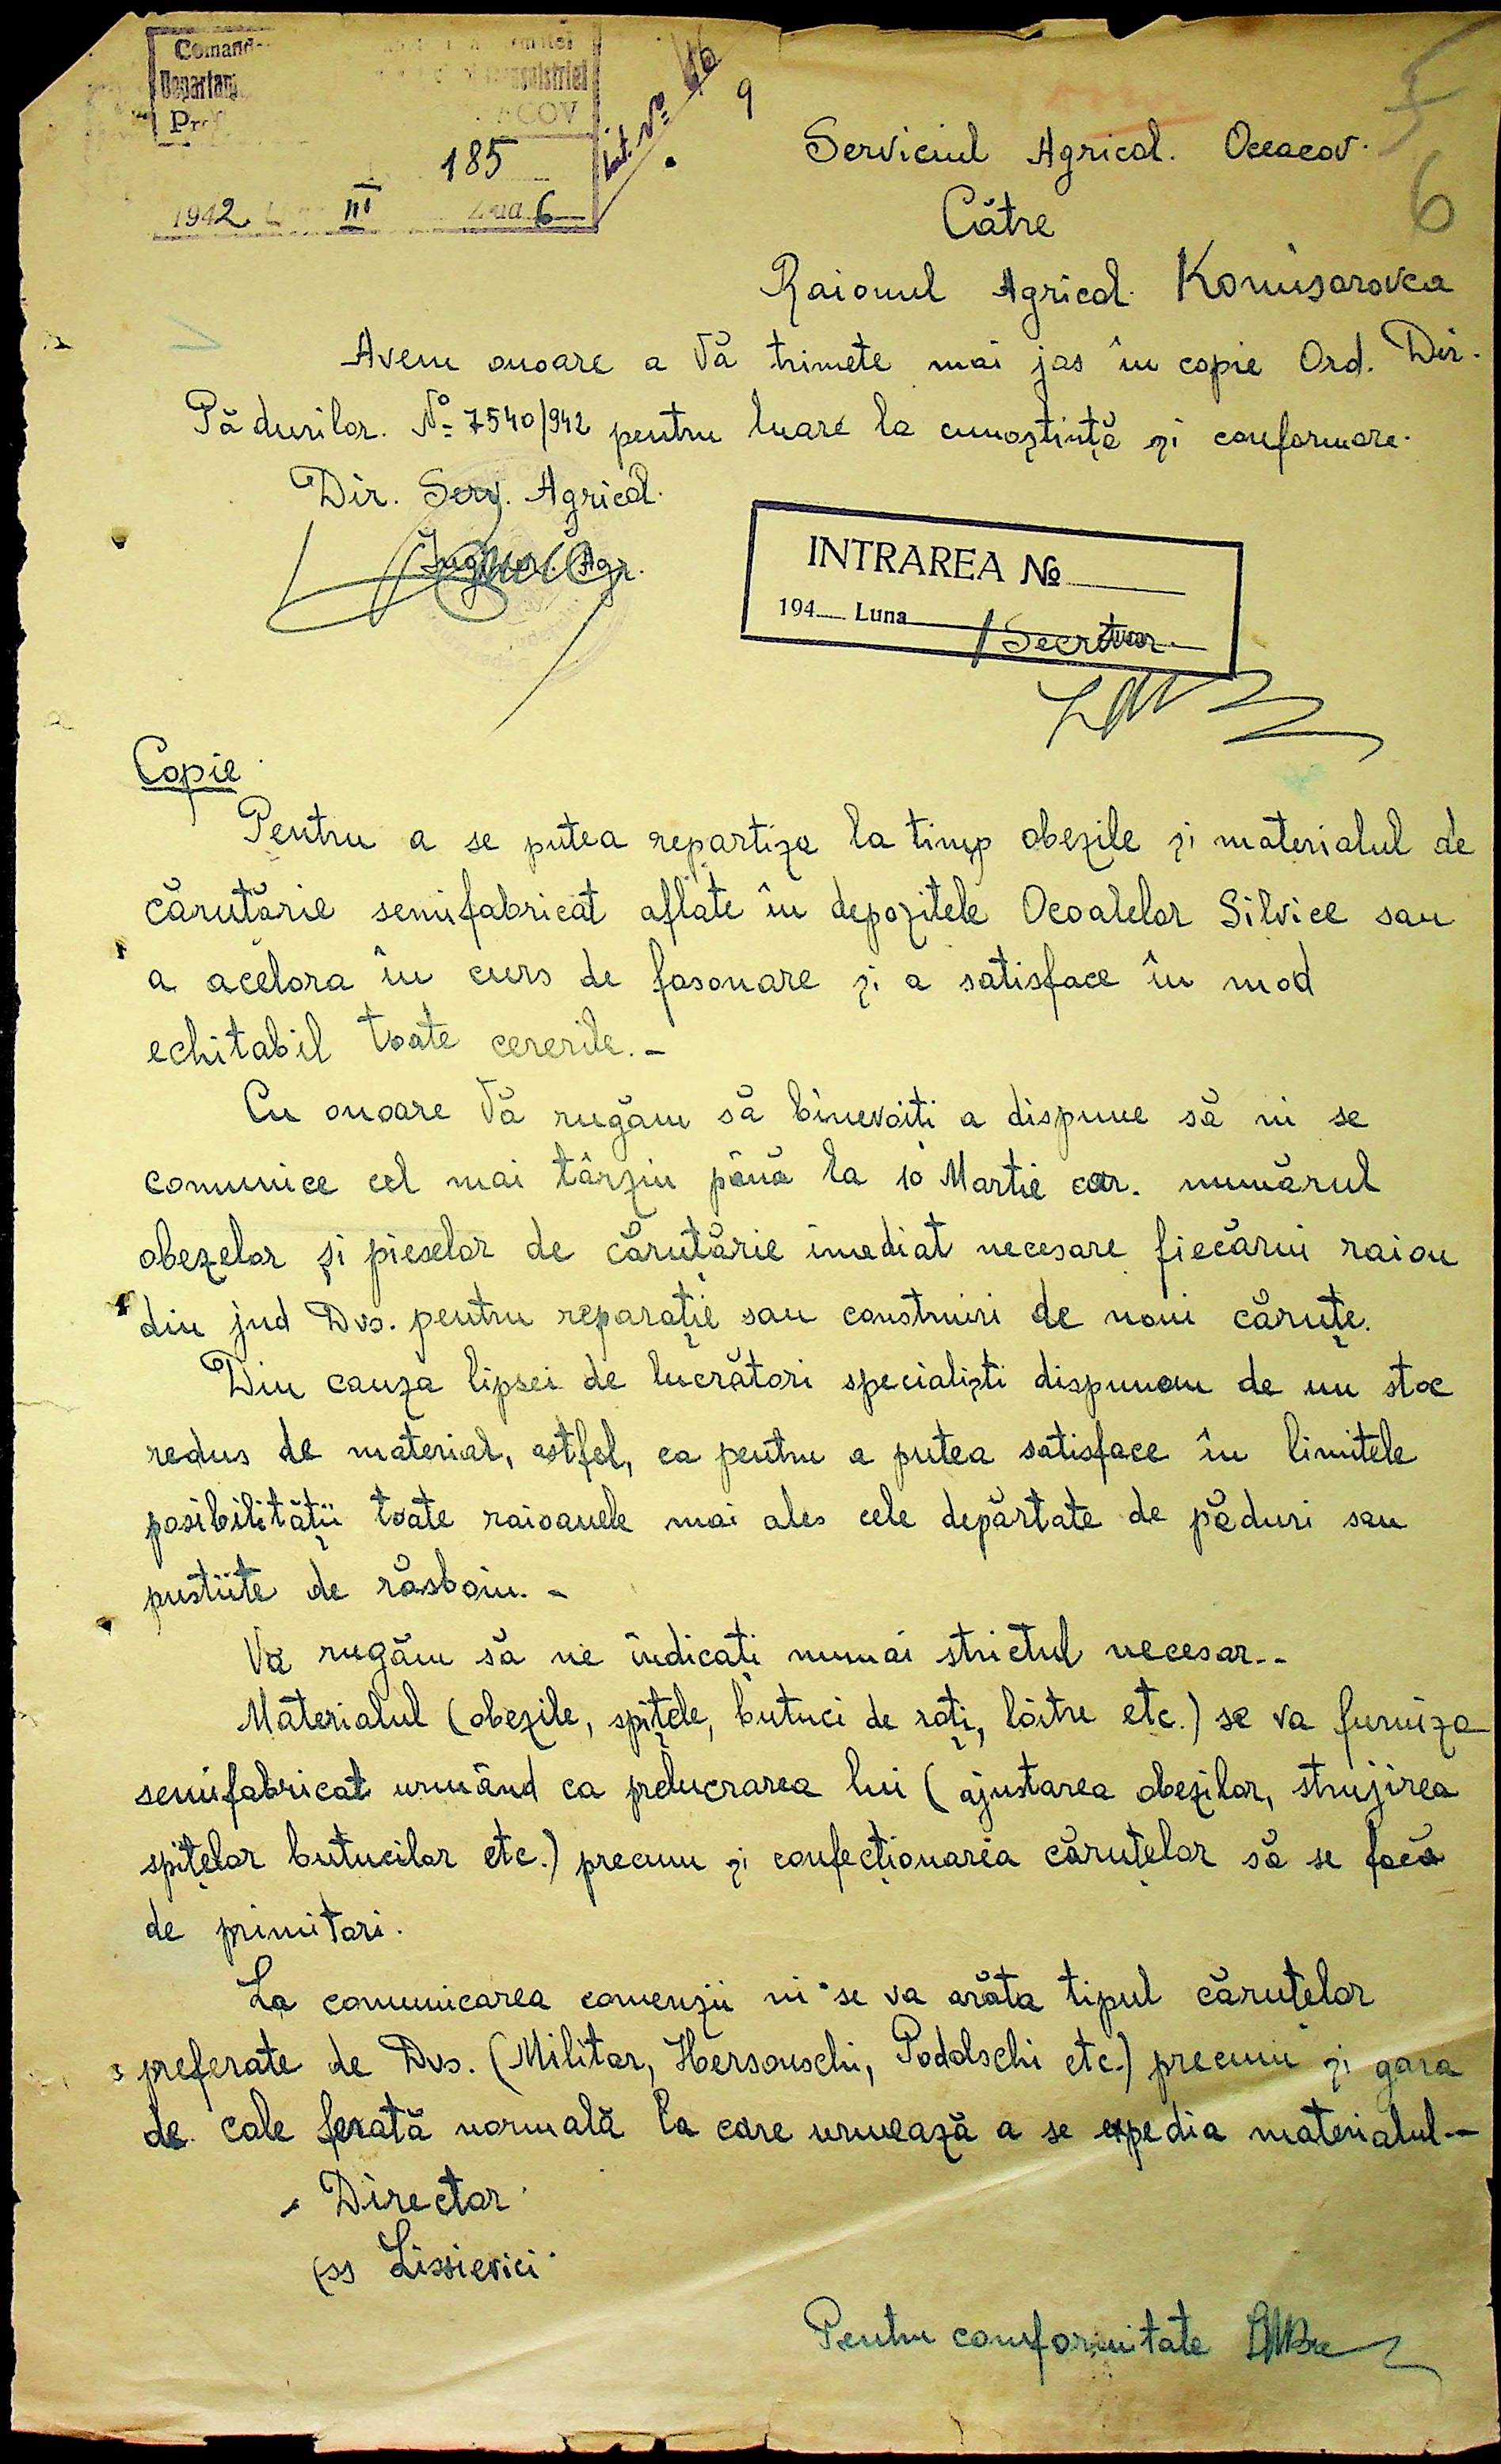 Comand
Departam
185
1942 III Ziua 6
Int. No 46
9
5
6
Serviciul Agricol. Oceacov.
Către
Raionul Agricol. Komisarovca
Avem onoare a Vă trimete mai jas în copie Ord. Dir.
Pădurilor. No 7540/942 pentru luare la cunoștință și conformare.
Dir. Serv. Agricol.
Inginer Agr.
INTRAREA No
194 Luna
Secretar
Copie
Pentru a se putea repartiza la timp obezile și materialul de
căruțărie semifabricat aflate în depozitele Ocoalelor Silvice sau
a acelora în curs de fasonare și a satisface în mod
echitabil toate cererile.-
Cu onoare Vă rugăm să binevoiți a dispune să ni se
comunice cel mai târziu până la 10 Martie cor. numărul
obezelor și pieselor de căruțărie imediat necesare fiecărui raion
din jud Dvs. pentru reparație sau construiri de noui căruțe.
Din cauza lipsei de lucrători specialiști dispunem de un stoc
redus de material, astfel, ca pentru a putea satisface în limitele
posibilității toate raioanele mai ales cele depărtate de păduri sau
pustiite de răsboiu.-
Va rugăm să ne indicați numai strictul necesar.-
Materialul (obezile, spițele, butuci de roți, loitre etc.) se va furniza
semifabricat urmând ca prelucrarea lui (ajustarea obezilor, strujirea
spițelor butucilor etc.) precum și confecționarea căruțelor să se facă
de primitori.
La comunicarea comenzii ni se va arăta tipul căruțelor
preferate de Dvs. (Militar, Hersonschi, Podolschi etc.) precum și gara
de cale ferată normală la care urmează a se expedia materialul.-
Director
(ss Lissievici
Pentru conformitate